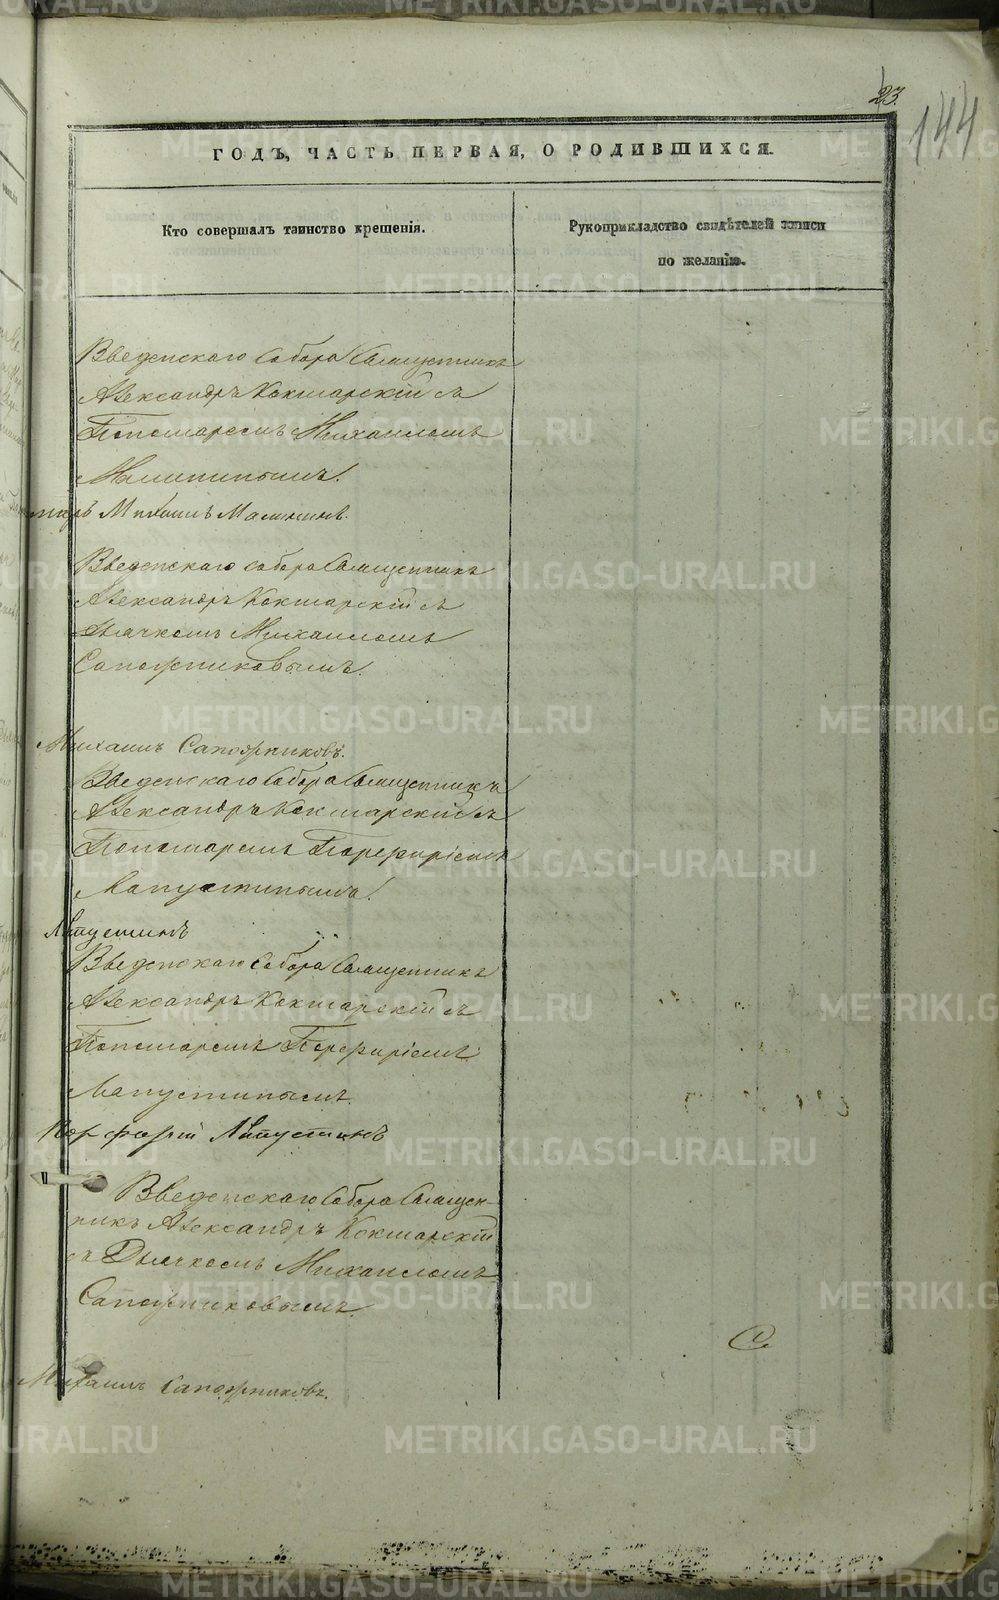 23.
144
ГОДЪ, ЧАСТЬ ПЕРВАЯ, О РОДИВШИХСЯ.
Кто совершалъ таинство крещенія.
Рукоприкладство свидѣтелей записи
по желанію.
Введенскаго Собора Священникъ
Александръ Кокшарскій съ
Пономаремъ Михаиломъ
Малининымъ.
Михаилъ Малининъ.
Введенскаго собора Священникъ
Александръ Кокшарскій съ
Дьячкомъ Михаиломъ
Сапожниковымъ.
Михаилъ Сапожниковъ.
Введенскаго Собора Священникъ
Александръ Кокшарскій съ
Пономаремъ Порфиріемъ
Лапустинымъ.
Лапустинъ
Введенскаго Собора Священникъ
Александръ Кокшарскій съ
Пономаремъ Порфиріемъ
Лапустинымъ.
Порфирій Лапустинъ
Введенскаго Собора Священ-
никъ Александръ Кокшарскій
съ Дьячкомъ Михаиломъ
Сапожниковымъ.
Михаилъ Сапожниковъ.
METRIKI.GASO-URAL.RU